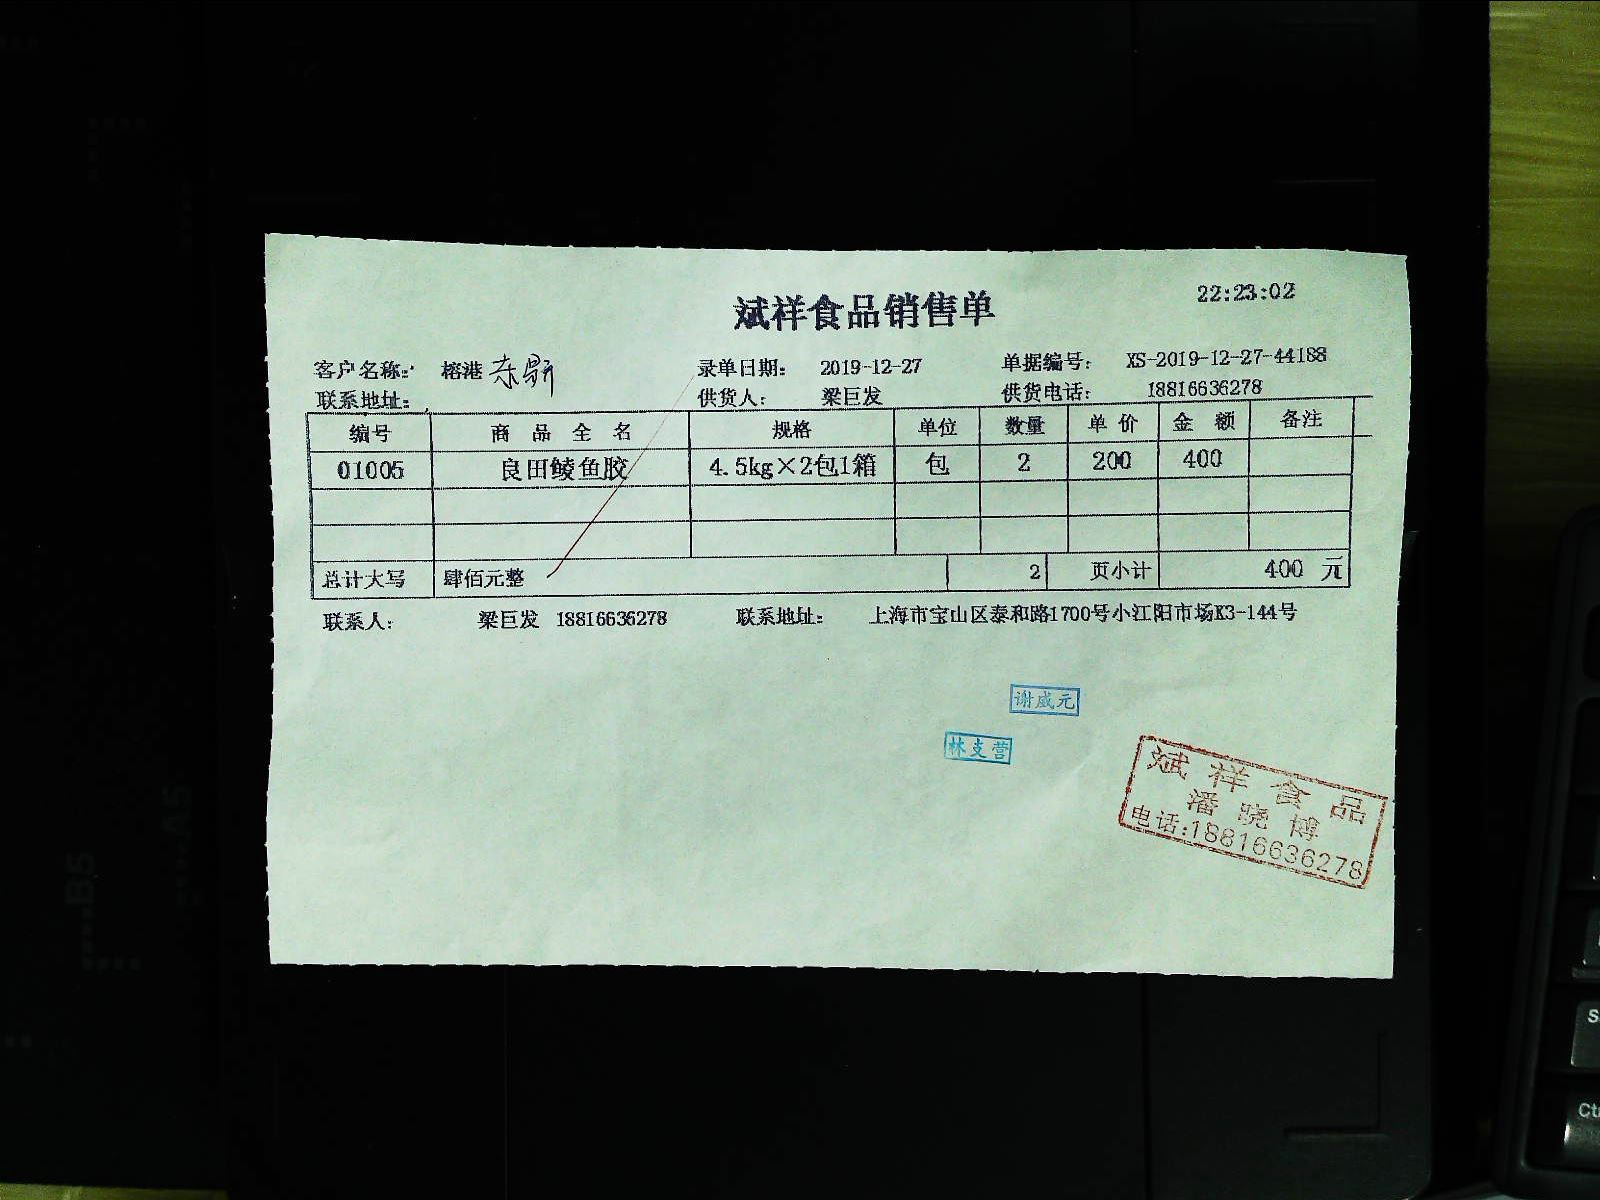 22:23:02
斌祥食品销售单
客户名称: 榕港 录单日期: 2019-12-27 单据编号: XS-2019-12-27-44188
联系地址: 供货人: 梁巨发 供货电话: 18816636278
编号 商品全名 规格 单位 数量 单价 金额 备注
01005 良田鲮鱼胶 4.5kg×2包1箱 包 2 200 400
总计大写 肆佰元整 2 页小计 400 元
联系人: 梁巨发 18816636278 联系地址: 上海市宝山区泰和路1700号小江阳市场K3-144号
谢成元
林支营
斌祥食品
潘晓博
电话:18816636278
B5
A5